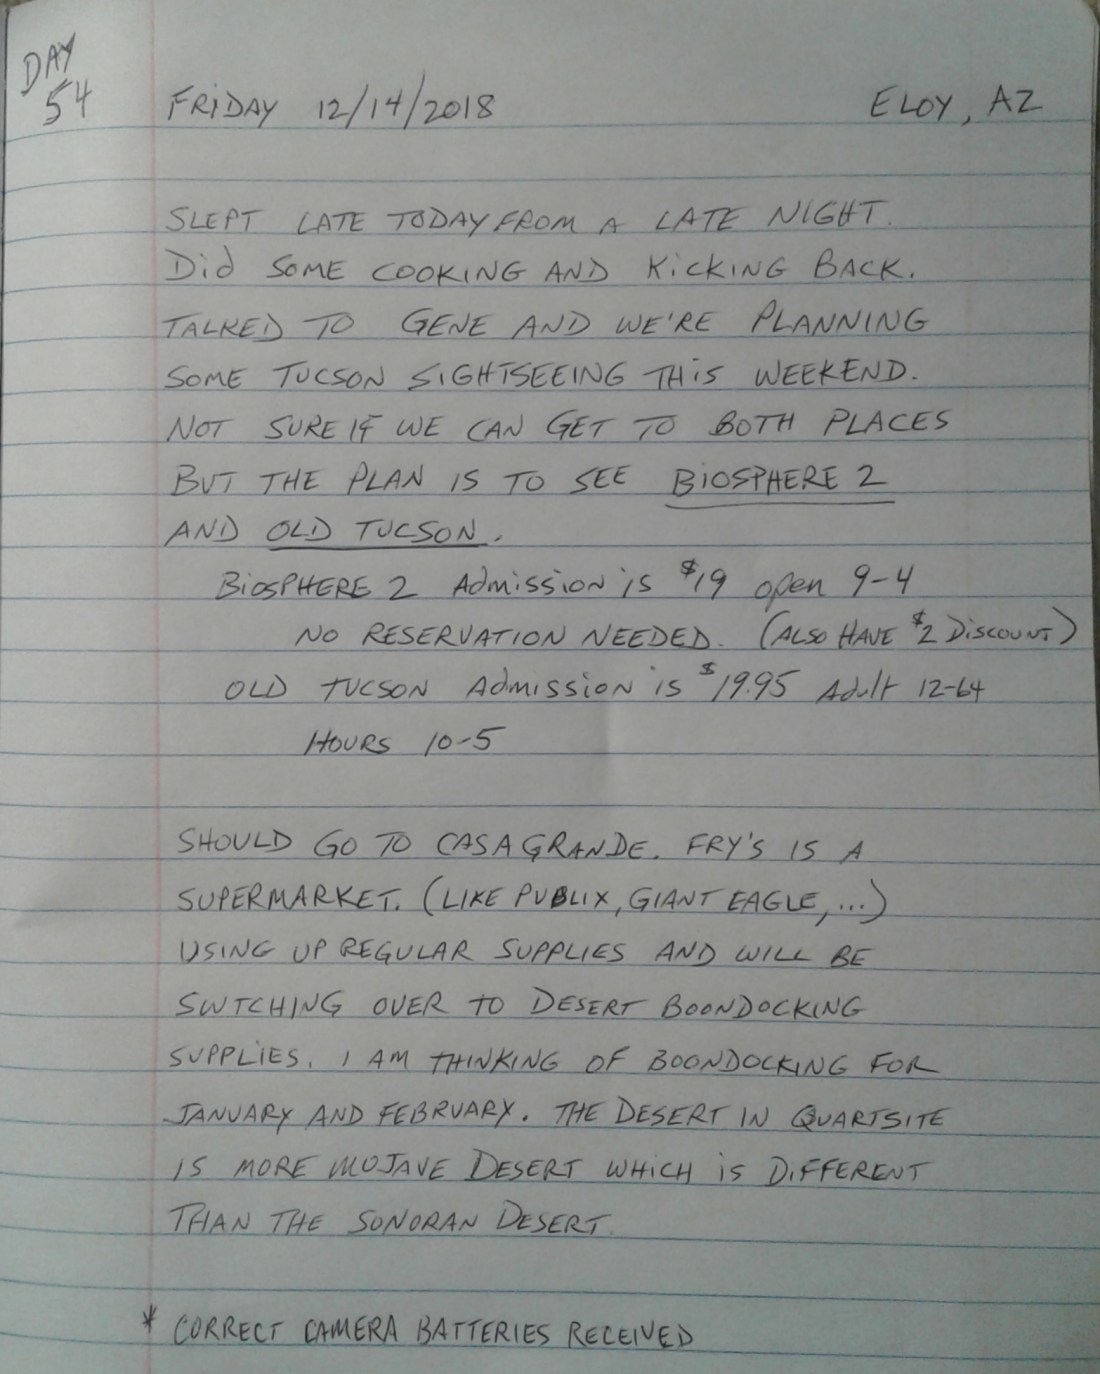 DAY
54
FRIDAY 12/14/2018 ELOY, AZ
SLEPT LATE TODAY FROM A LATE NIGHT.
Did SOME COOKING AND KICKING BACK.
TALKED TO GENE AND WE'RE PLANNING
SOME TUCSON SIGHTSEEING THIS WEEKEND.
NOT SURE IF WE CAN GET TO BOTH PLACES
BUT THE PLAN IS TO SEE BIOSPHERE 2
AND OLD TUCSON.
BIOSPHERE 2 Admission is $19 open 9-4
NO RESERVATION NEEDED. (ALSO HAVE $2 DISCOUNT)
OLD TUCSON Admission is $19.95 Adult 12-64
HOURS 10-5
SHOULD GO TO CASA GRANDE. FRY'S IS A
SUPERMARKET. (LIKE PUBLIX, GIANT EAGLE, ...)
USING UP REGULAR SUPPLIES AND WILL BE
SWTCHING OVER TO DESERT BOONDOCKING
SUPPLIES. I AM THINKING OF BOONDOCKING FOR
JANUARY AND FEBRUARY. THE DESERT IN QUARTSITE
IS MORE MOJAVE DESERT WHICH IS DIFFERENT
THAN THE SONORAN DESERT.
* CORRECT CAMERA BATTERIES RECEIVED